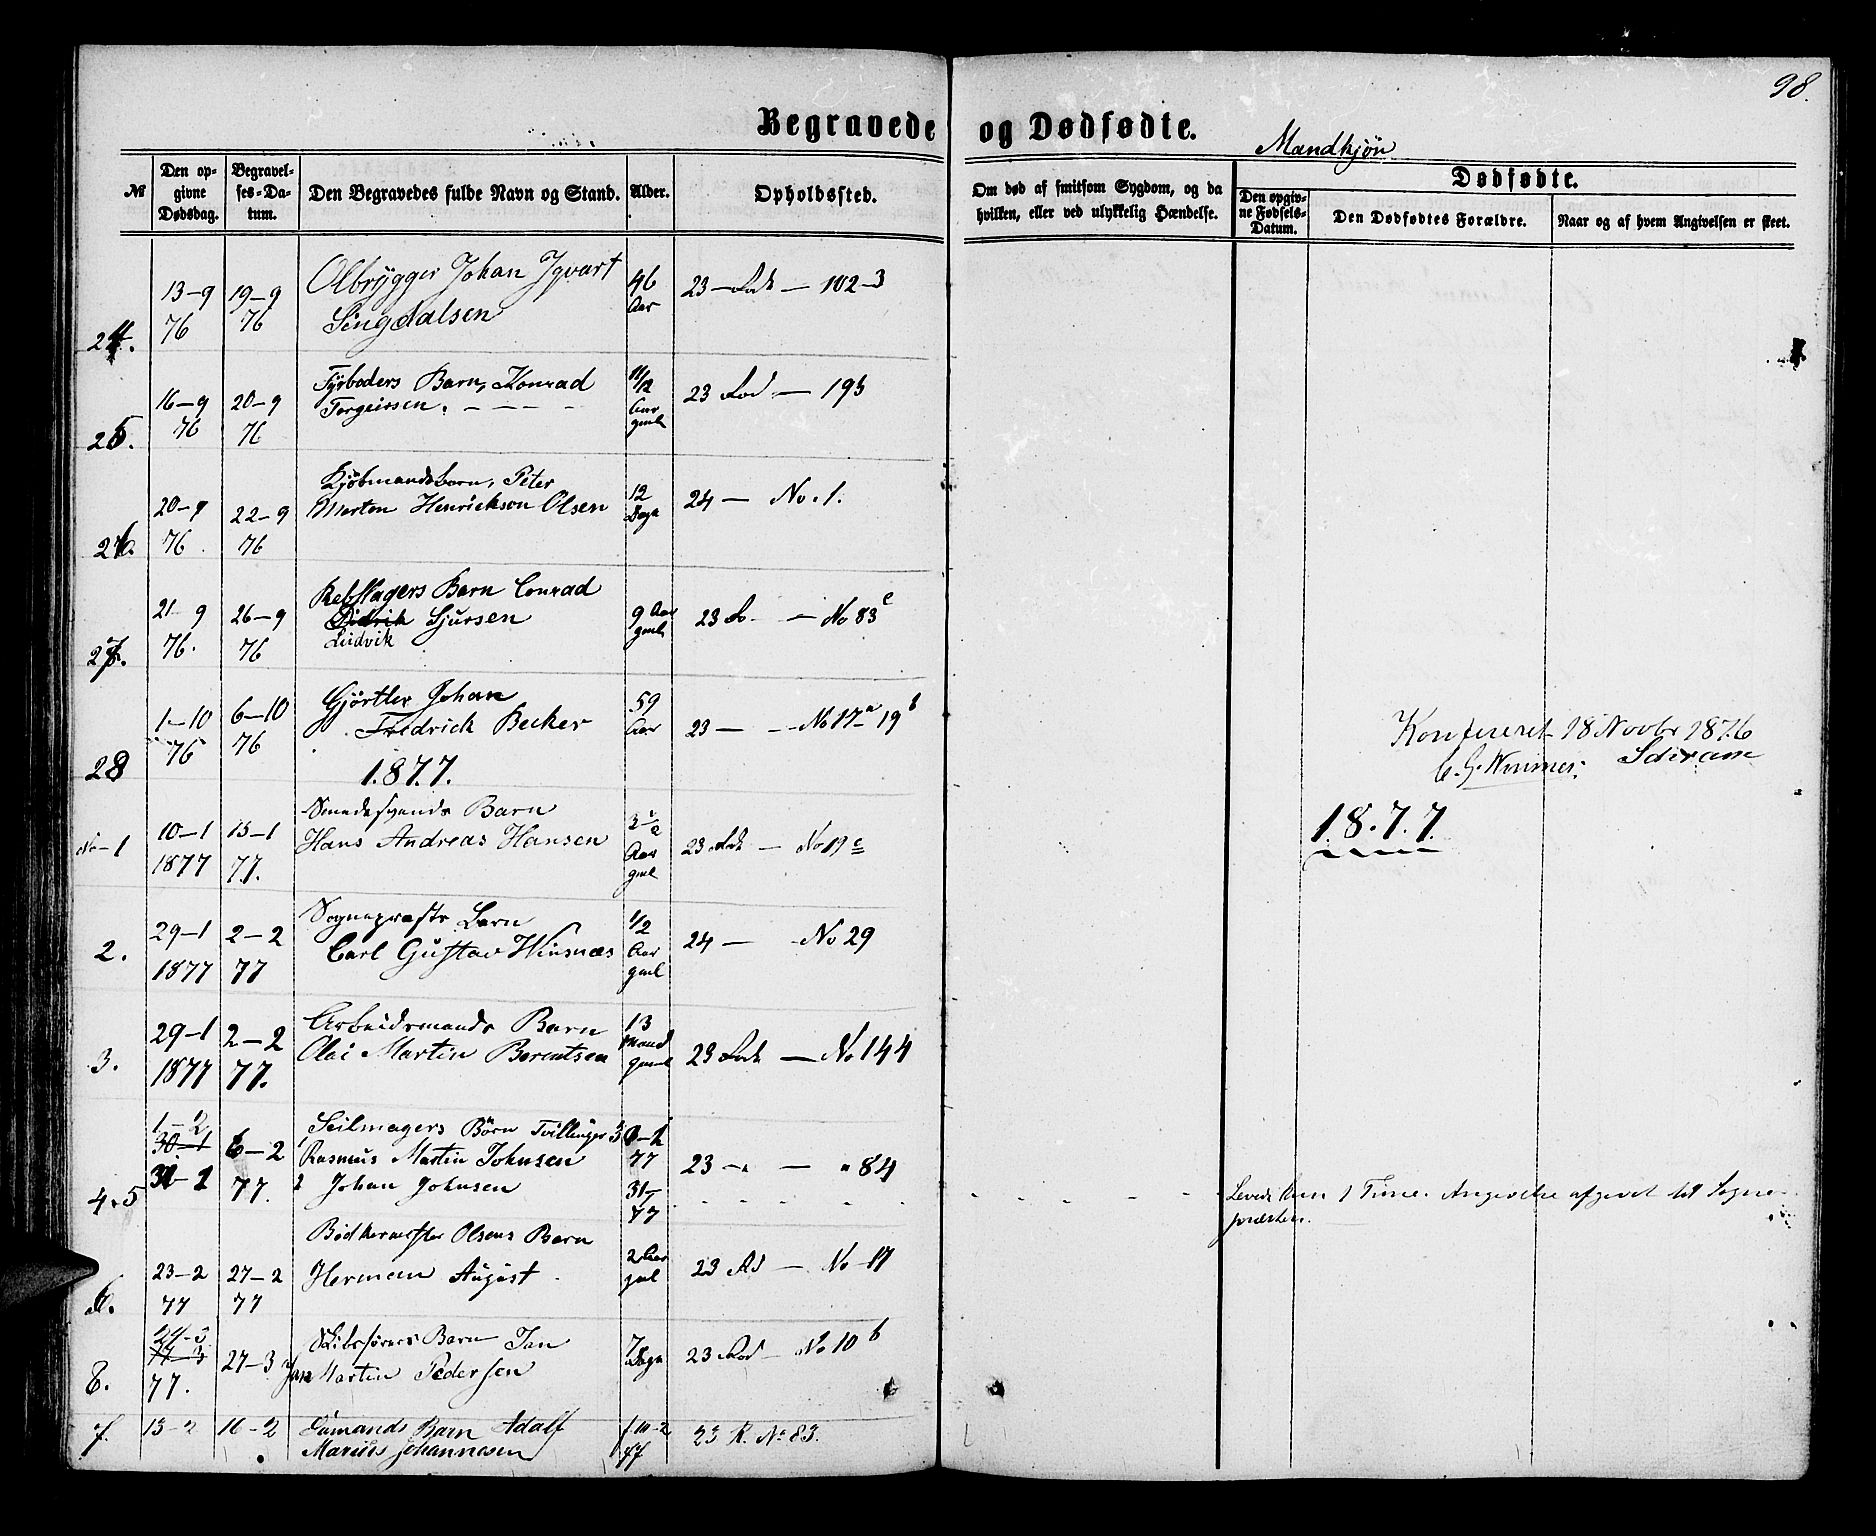 98.
Begravede og Dødfødte.
Mandkjön
№
Den opgivne Dødsdag.
Begravelses-Datum.
Den Begravedes fulde Navn og Stand.
Alder.
Opholdssted.
Om død af smitsom Sygdom, og da hvilken, eller ved ulykkelig Hændelse.
Dødfødte.
Den opgivne Fødsels-Datum.
Den Dødfødtes Forældre.
Naar og af hvem Angivelsen er skeet.
24. 13-9 76 19-9 76 Ølbrygger Johan 46 Aar 23 - Rode - 102-3
Singdalsen
25. 16-9 76 20-9 76 Fyrbøders Barn, Konrad 1 1/2 Aar gml 23 Rod - 193
Torgeirsen.
26. 20-9 76. 22-9 76 Kjøbmandsbarn, Peter 12 Dage 24 - No. 1.
Morten Henrickson Olsen
27. 21-9 76. 26-9 76 Rebslagers Barn Conrad 9 Aar gml 23 - No 83 c
Didrik Sjursen
Ludvik
28 1-10 76 6-10 76 Gjørtler Johan 59 Aar 23 - No 17 a 19 b
Fredrick Becker
Konfereret 18 Novbr 1876
1.8.7.7.
1.8.7.7.
No 1 10-1 1877 15-1 77. Smedesvends Barn Aar gml 23 Rode - No 19 c
Hans Andreas Hansen
2. 29-1 1877 2-2 77 Sogneprests Barn 1/2 Aar gml 24 - No 29
Carl Gustav Winsnæs
3. 29-1 1877 2-2 77. Arbeidsmands Barn 13 Maand gmel 23 Rode - No 144
Olai Martin Berentsen
4.5 1-2 30-1 31-1 6-2 77. Seilmagers Börn Tvillinger 77 23 - " 84
1 Rasmus Martin Johnsen
2 Johan Johnsen 31-1 77
Levede kun 1 Time. Angivelse afgivet til Sogne-
præsten.
6. 23-2 77 27-2 77 Bødkermester Olsens Barn 2 Aar gml 23 Rd - No 17
Herman August
8. 77. 27-3 Skibsførers Barn Jan 7 Dage 23 Rod - No 10 b
Martin Pedersen
7. 13-2 16-2 Sømands Barn Adolf 23 R. No 83.
Marius Johannesen 77